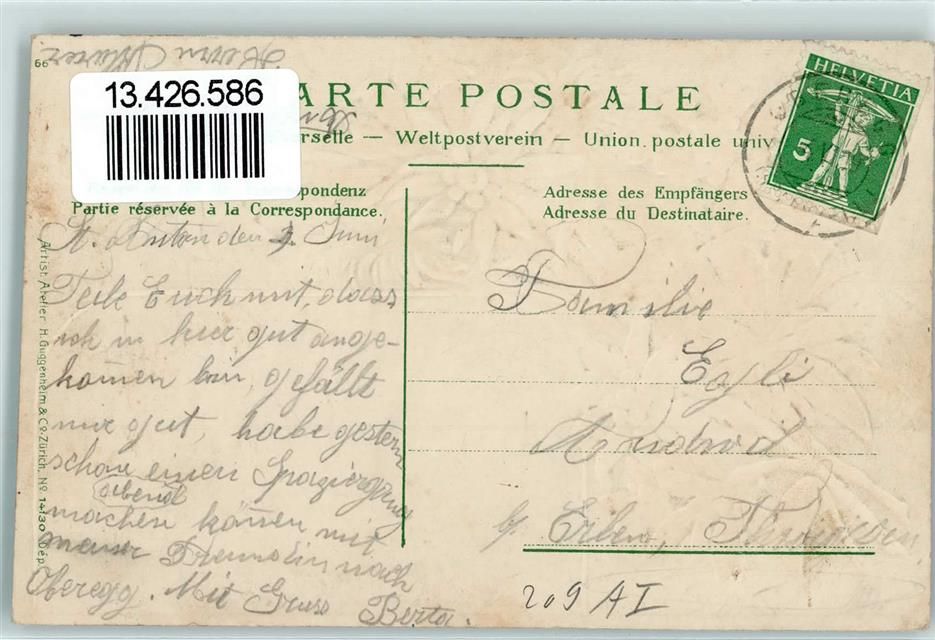 66
Herrn
13.426.586
ARTE POSTALE
rselle — Weltpostverein — Union postale univ
pondenz
Partie réservée à la Correspondance.
Adresse des Empfängers
Adresse du Destinataire.
HELVETIA
5
St. Anton den 3. Juni
Teile Euch mit, dass
ich in hier gut ange-
komen bin, gefällt
mir gut, habe gestern
abend
schon einen Spaziergang
machen können, mit
meiner Freundin nach
Oberegg. Mit Gruss Berta.
Familie
Egli
b/ Erlen, Thurgau
209 AI
Artist. Atelier H. Guggenheim & Co. Zürich. No 14130 Dép.